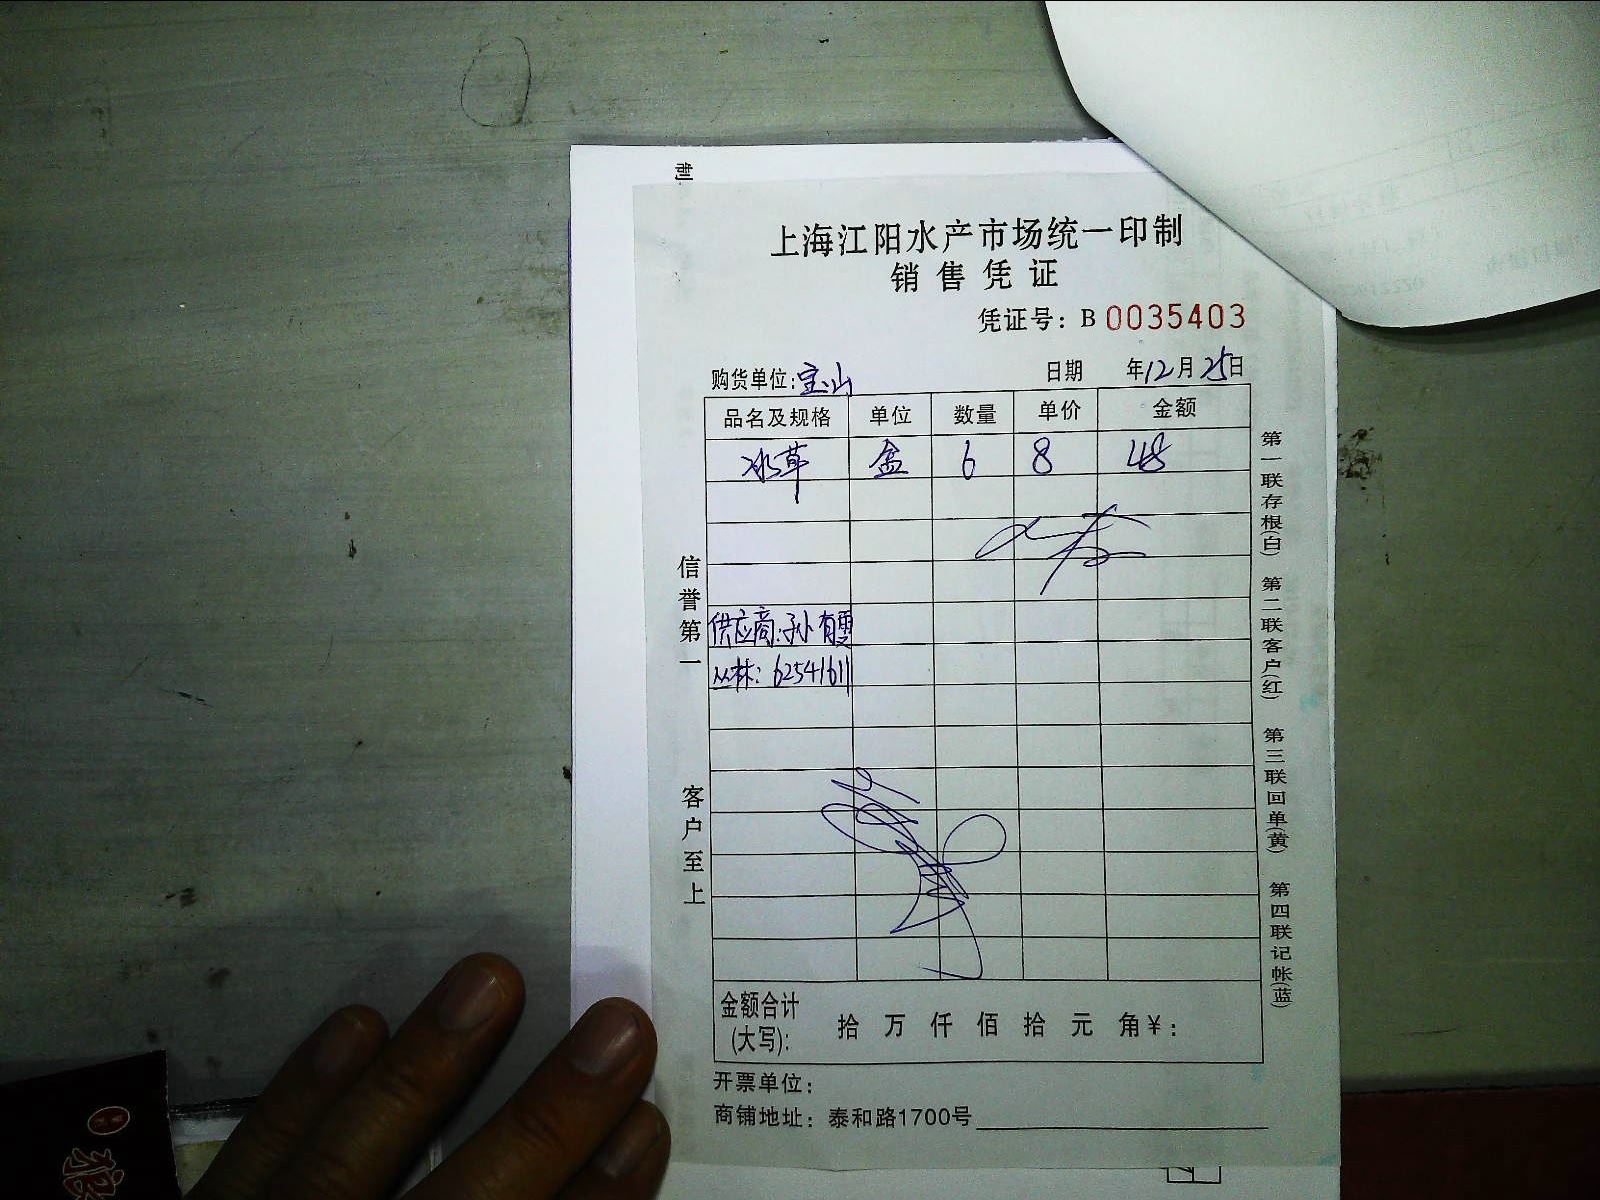 制
上海江阳水产市场统一印制
销售凭证
凭证号：B 0035403
购货单位：宝山 日期 年12月25日
品名及规格 单位 数量 单价 金额
冰草 盒 6 8 48
供应商：孙有雪
丛林：62541611
信誉第一
客户至上
第一联存根(白) 第二联客户(红) 第三联回单(黄) 第四联记帐(蓝)
金额合计
(大写)： 拾 万 仟 佰 拾 元 角￥：
开票单位：
商铺地址：泰和路1700号